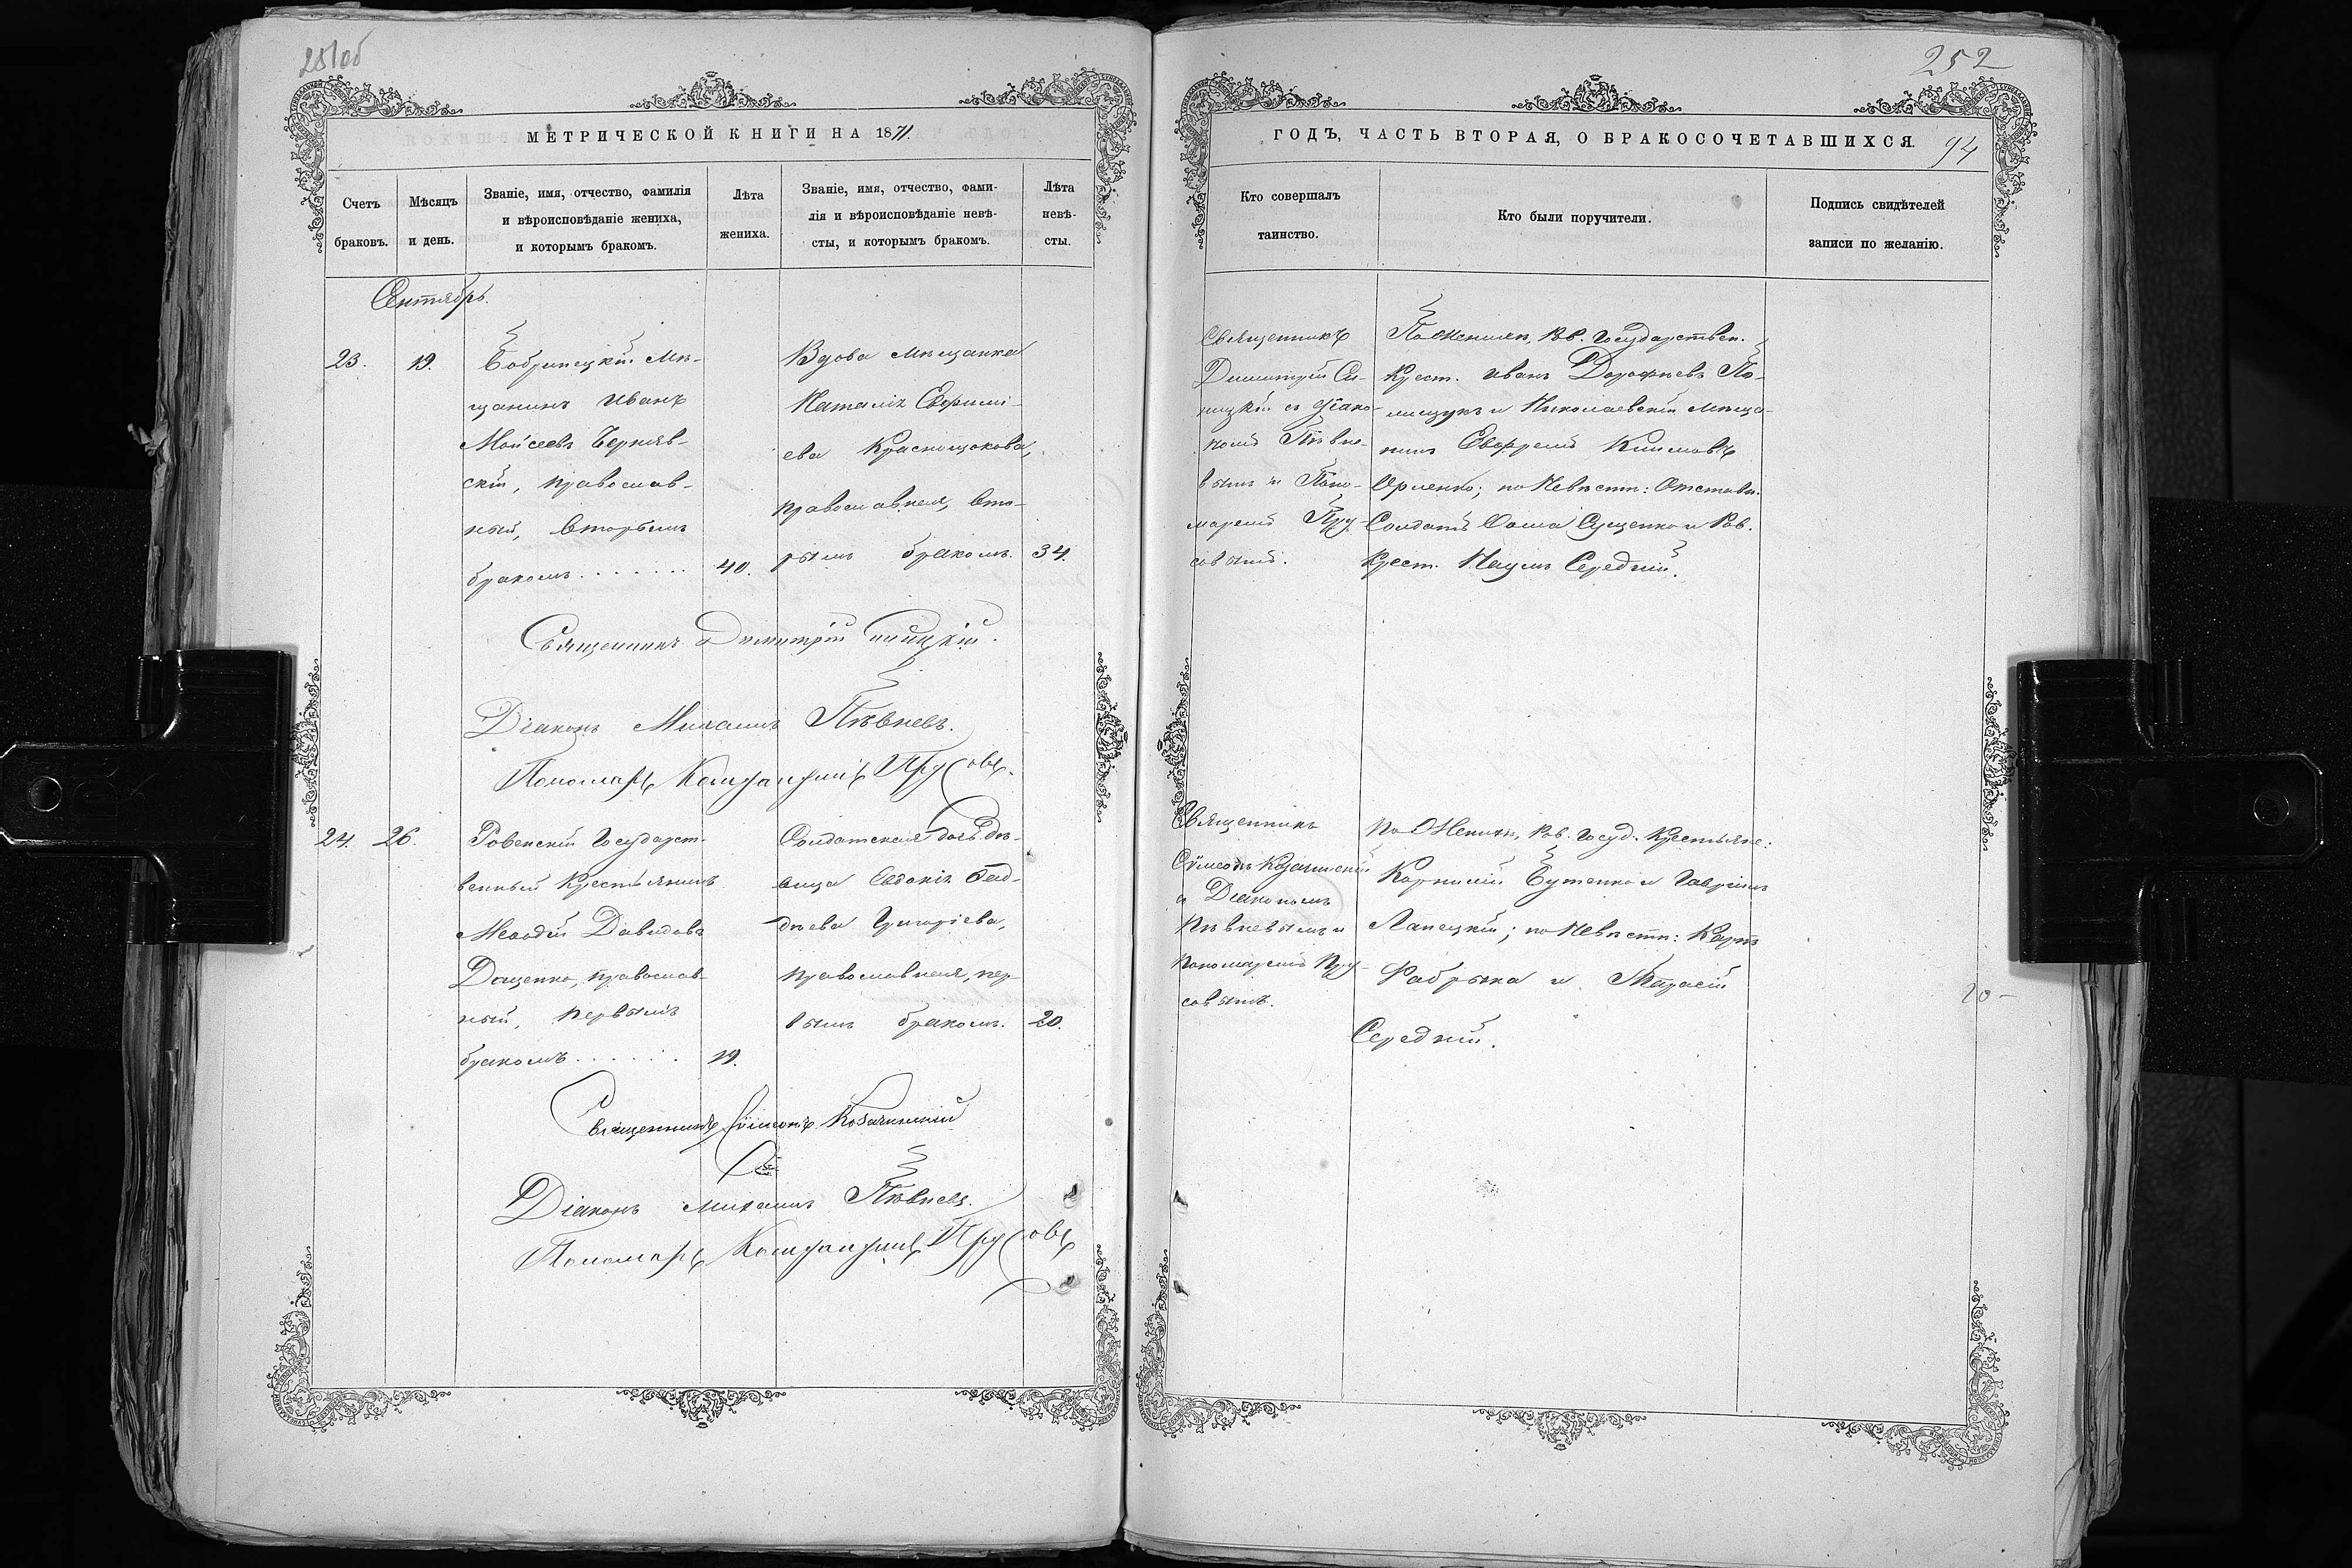 251об
МЕТРИЧЕСКОЙ КНИГИ НА 1871.
Счетъ браковъ.
Мѣсяцъ и день.
Званіе, имя, отчество, фамилія
и вѣроисповѣданіе жениха,
и которымъ бракомъ.
Лѣта
жениха.
Званіе, имя, отчество, фами-
лія и вѣроисповѣданіе невѣ-
сты, и которымъ бракомъ.
Лѣта
невѣ-
сты.
Сентябрь.
23.
19.
Бобринецкій Мѣ-
щанинъ Иванъ
Моѵсеевъ Черняв-
скій, православ-
ный, вторымъ
бракомъ . . . . . . .
40.
Вдова мѣщанка
Наталія Ефимі-
ева Краснощокова,
православная, вто-
рымъ бракомъ.
34.
Священникъ Димитрій
Діаконъ Михаилъ Пѣвневъ.
Пономарь Прусовъ.
24.
26.
Ровенскій Государст-
венный Крестьянинъ
Меѳодій Давидовъ
Даценко, православ-
ный, первымъ
бракомъ . . . . . .
19.
Солдатская дочь дѣ-
вица Евдокія Ѳад-
дѣева Григоріева,
православная, пер-
вымъ бракомъ.
20.
Священникъ Сѵмеонъ Козачинскій
Діаконъ Михаилъ Пѣвневъ.
Пономарь Прусовъ
252
ГОДЪ, ЧАСТЬ ВТОРАЯ, О БРАКОСОЧЕТАВШИХСЯ.
94
Кто совершалъ
таинство.
Кто были поручители.
Подпись свидѣтелей
записи по желанію.
Священникъ
Димитрій Си-
ницкій съ Діако-
номъ Пѣвне-
вымъ и Поно-
маремъ Пру-
совымъ.
По Женихѣ, Ров. Государствен.
Крест. Иванъ Дороѳеевъ По-
лищукъ и Николаевскій мѣща-
нинъ Евфремъ Климовъ
Орленко; по Невѣстѣ: Отставн.
Солдатъ Ѳома Сущенко и Ров.
Крест. Наумъ Середній.
Священникъ
Сѵмеонъ Козачинскій
съ Діакономъ
Пѣвневымъ и
Пономаремъ Пру-
совымъ.
По Женихѣ, Ров. Госуд. Крестьяне:
Корнилій Бутенко и Гавріилъ
Лапецкій; по Невѣстѣ: Карпъ
Фабрыка и Тарасій
Середній.
20-